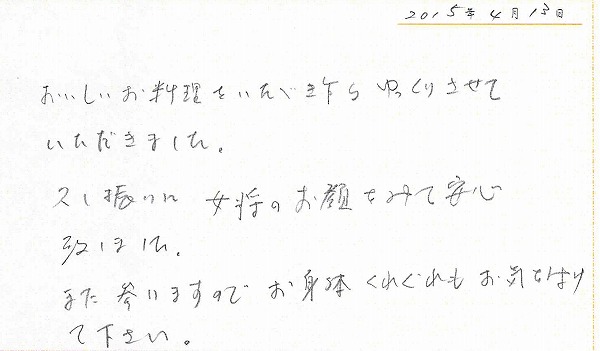 2015年4月13日
おいしいお料理をいただき乍らゆっくりさせて
いただきました。
久し振りに女将のお顔をみて安心
致しました。
また参りますのでお身体くれぐれもお気をつけ
て下さい。